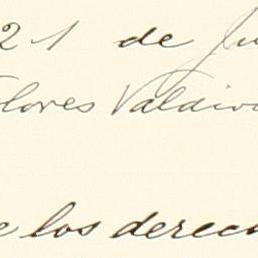 21 de Ju
Flores Valdivi
e los derech